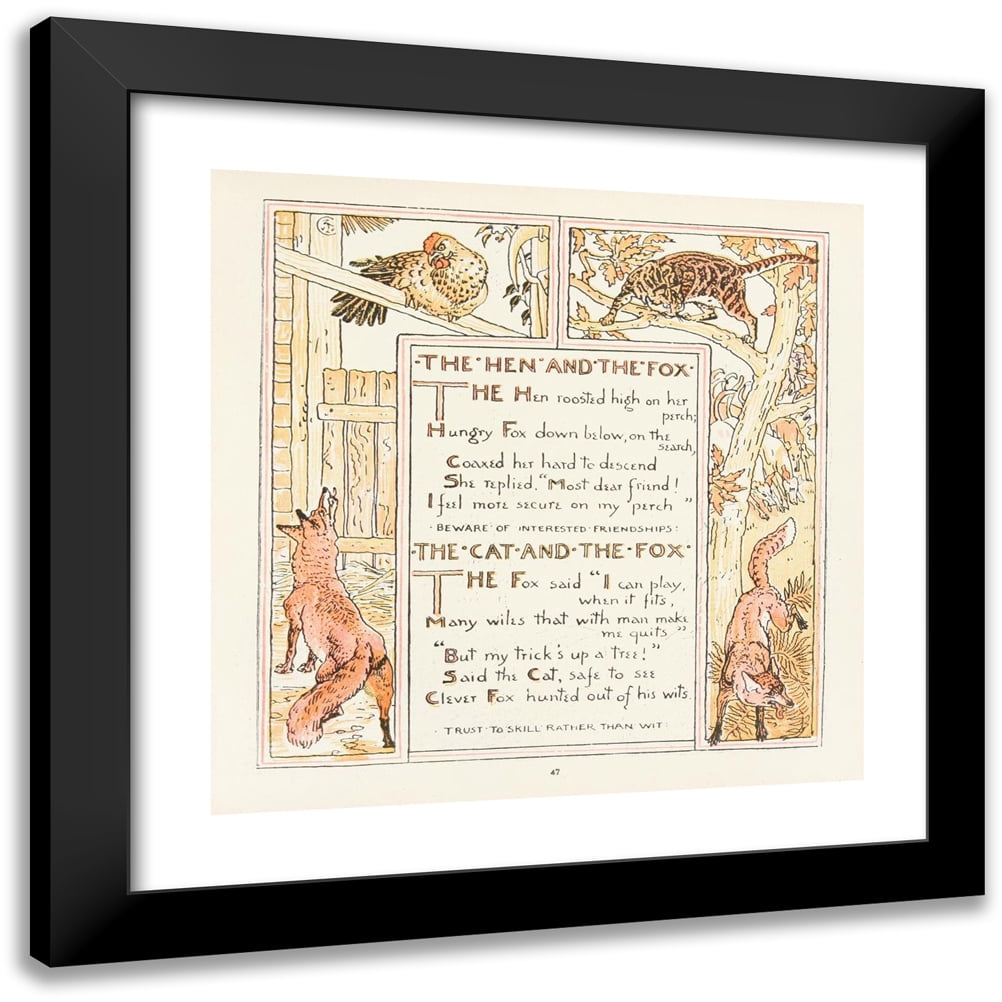 ·THE·HEN·AND·THE·FOX·
THE Hen roosted high on her
perch;
Hungry Fox down below, on the
search,
Coaxed her hard to descend
She replied, "Most dear friend!
I feel more secure on my perch"
·BEWARE·OF INTERESTED·FRIENDSHIPS:
·THE·CAT·AND·THE·FOX·
THE Fox said "I can play,
when it fits,
Many wiles that with man make
me quits"
"But my trick's up a tree!"
Said the Cat, safe to see
Clever Fox hunted out of his wits.
·TRUST·TO·SKILL·RATHER THAN WIT·
47